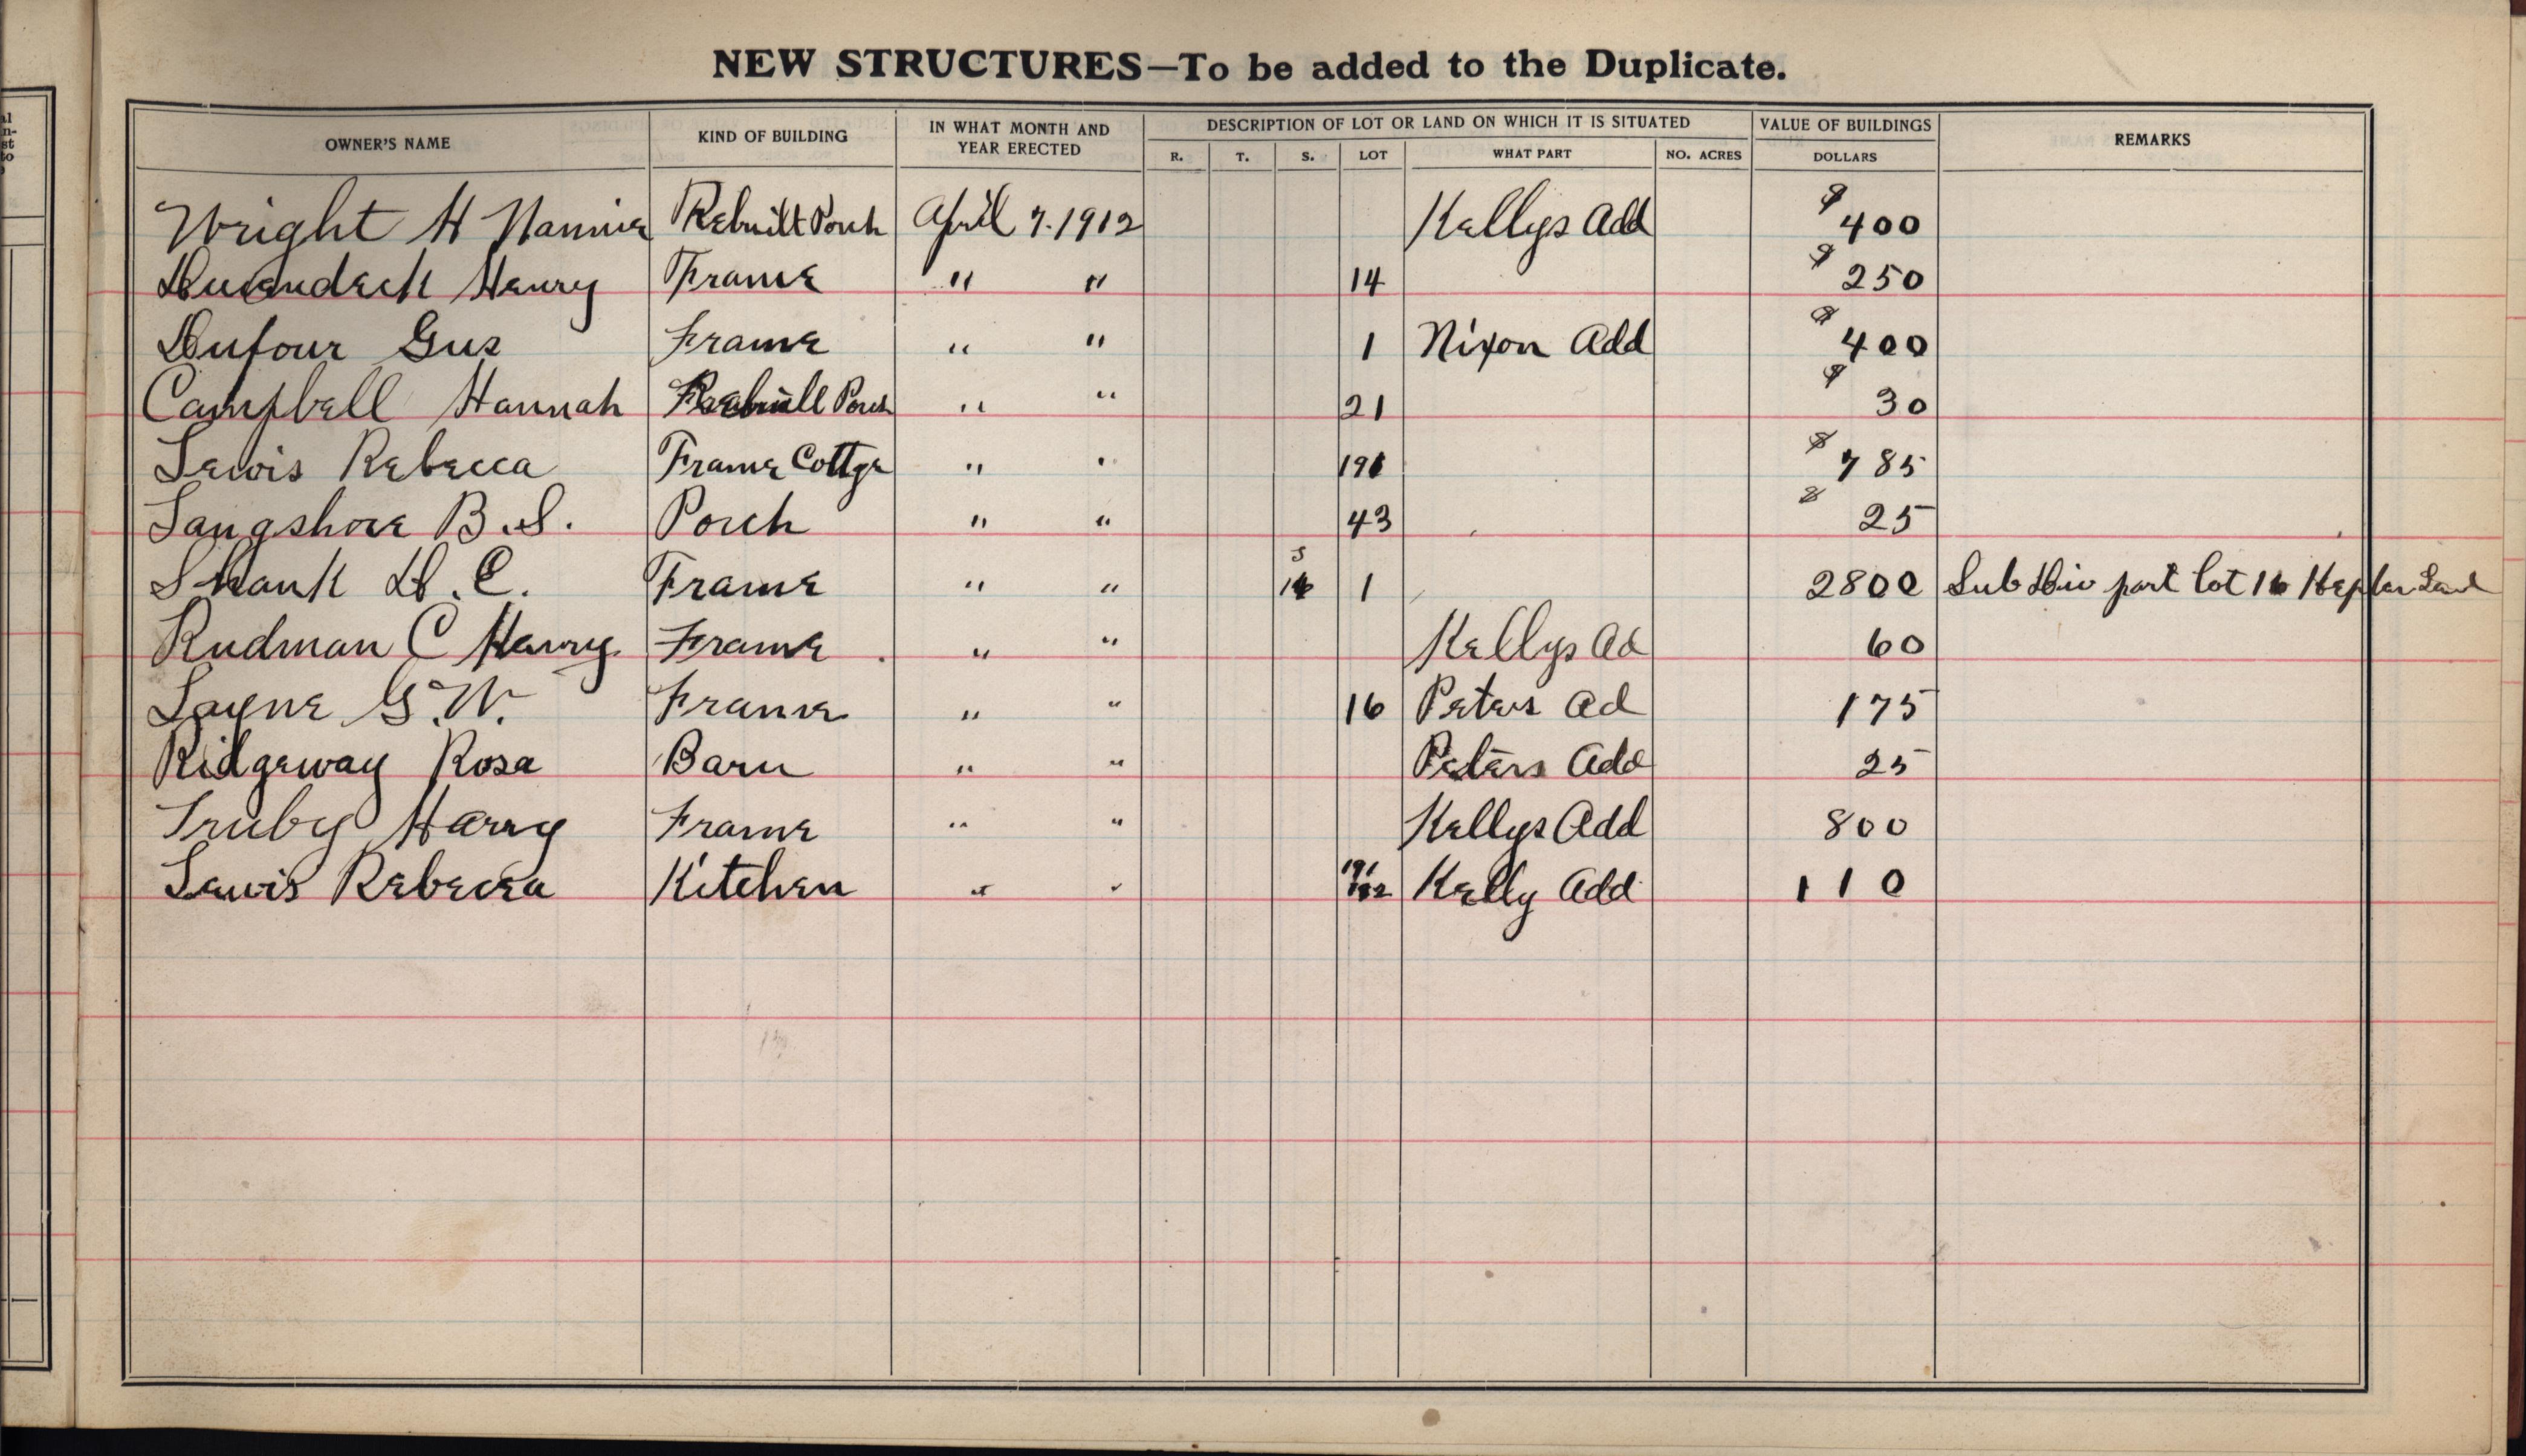 al
n-
st
to
NEW STRUCTURES—To be added to the Duplicate.
OWNER'S NAME KIND OF BUILDING IN WHAT MONTH AND YEAR ERECTED DESCRIPTION OF LOT OR LAND ON WHICH IT IS SITUATED VALUE OF BUILDINGS REMARKS
R. T. S. LOT WHAT PART NO. ACRES DOLLARS
Wright H Nannie Rebuilt Porch April 7. 1912 Kellys Add $ 400
Henry Frame " " 14 $ 250
Dufour Gus Frame " " 1 Nixon Add $ 400
Campbell Hannah Porch " " 21 $ 30
Lewis Rebecca Frame Cottge " " 191 $ 785
Langshore B.S. Porch " " 43 $ 25
Shank D. E. Frame " " 1 2800 Sub Div part lot 16 Land
Rudman C Harry Frame " " Kellys Ad 60
Layne G.W. Frame " " 16 Peters Ad 175
Ridgeway Rosa Barn " " Peters Add 25
Truby Harry Frame " " Kellys Add 800
Lewis Rebecca Kitchen " " 191 192 Kelly Add 110